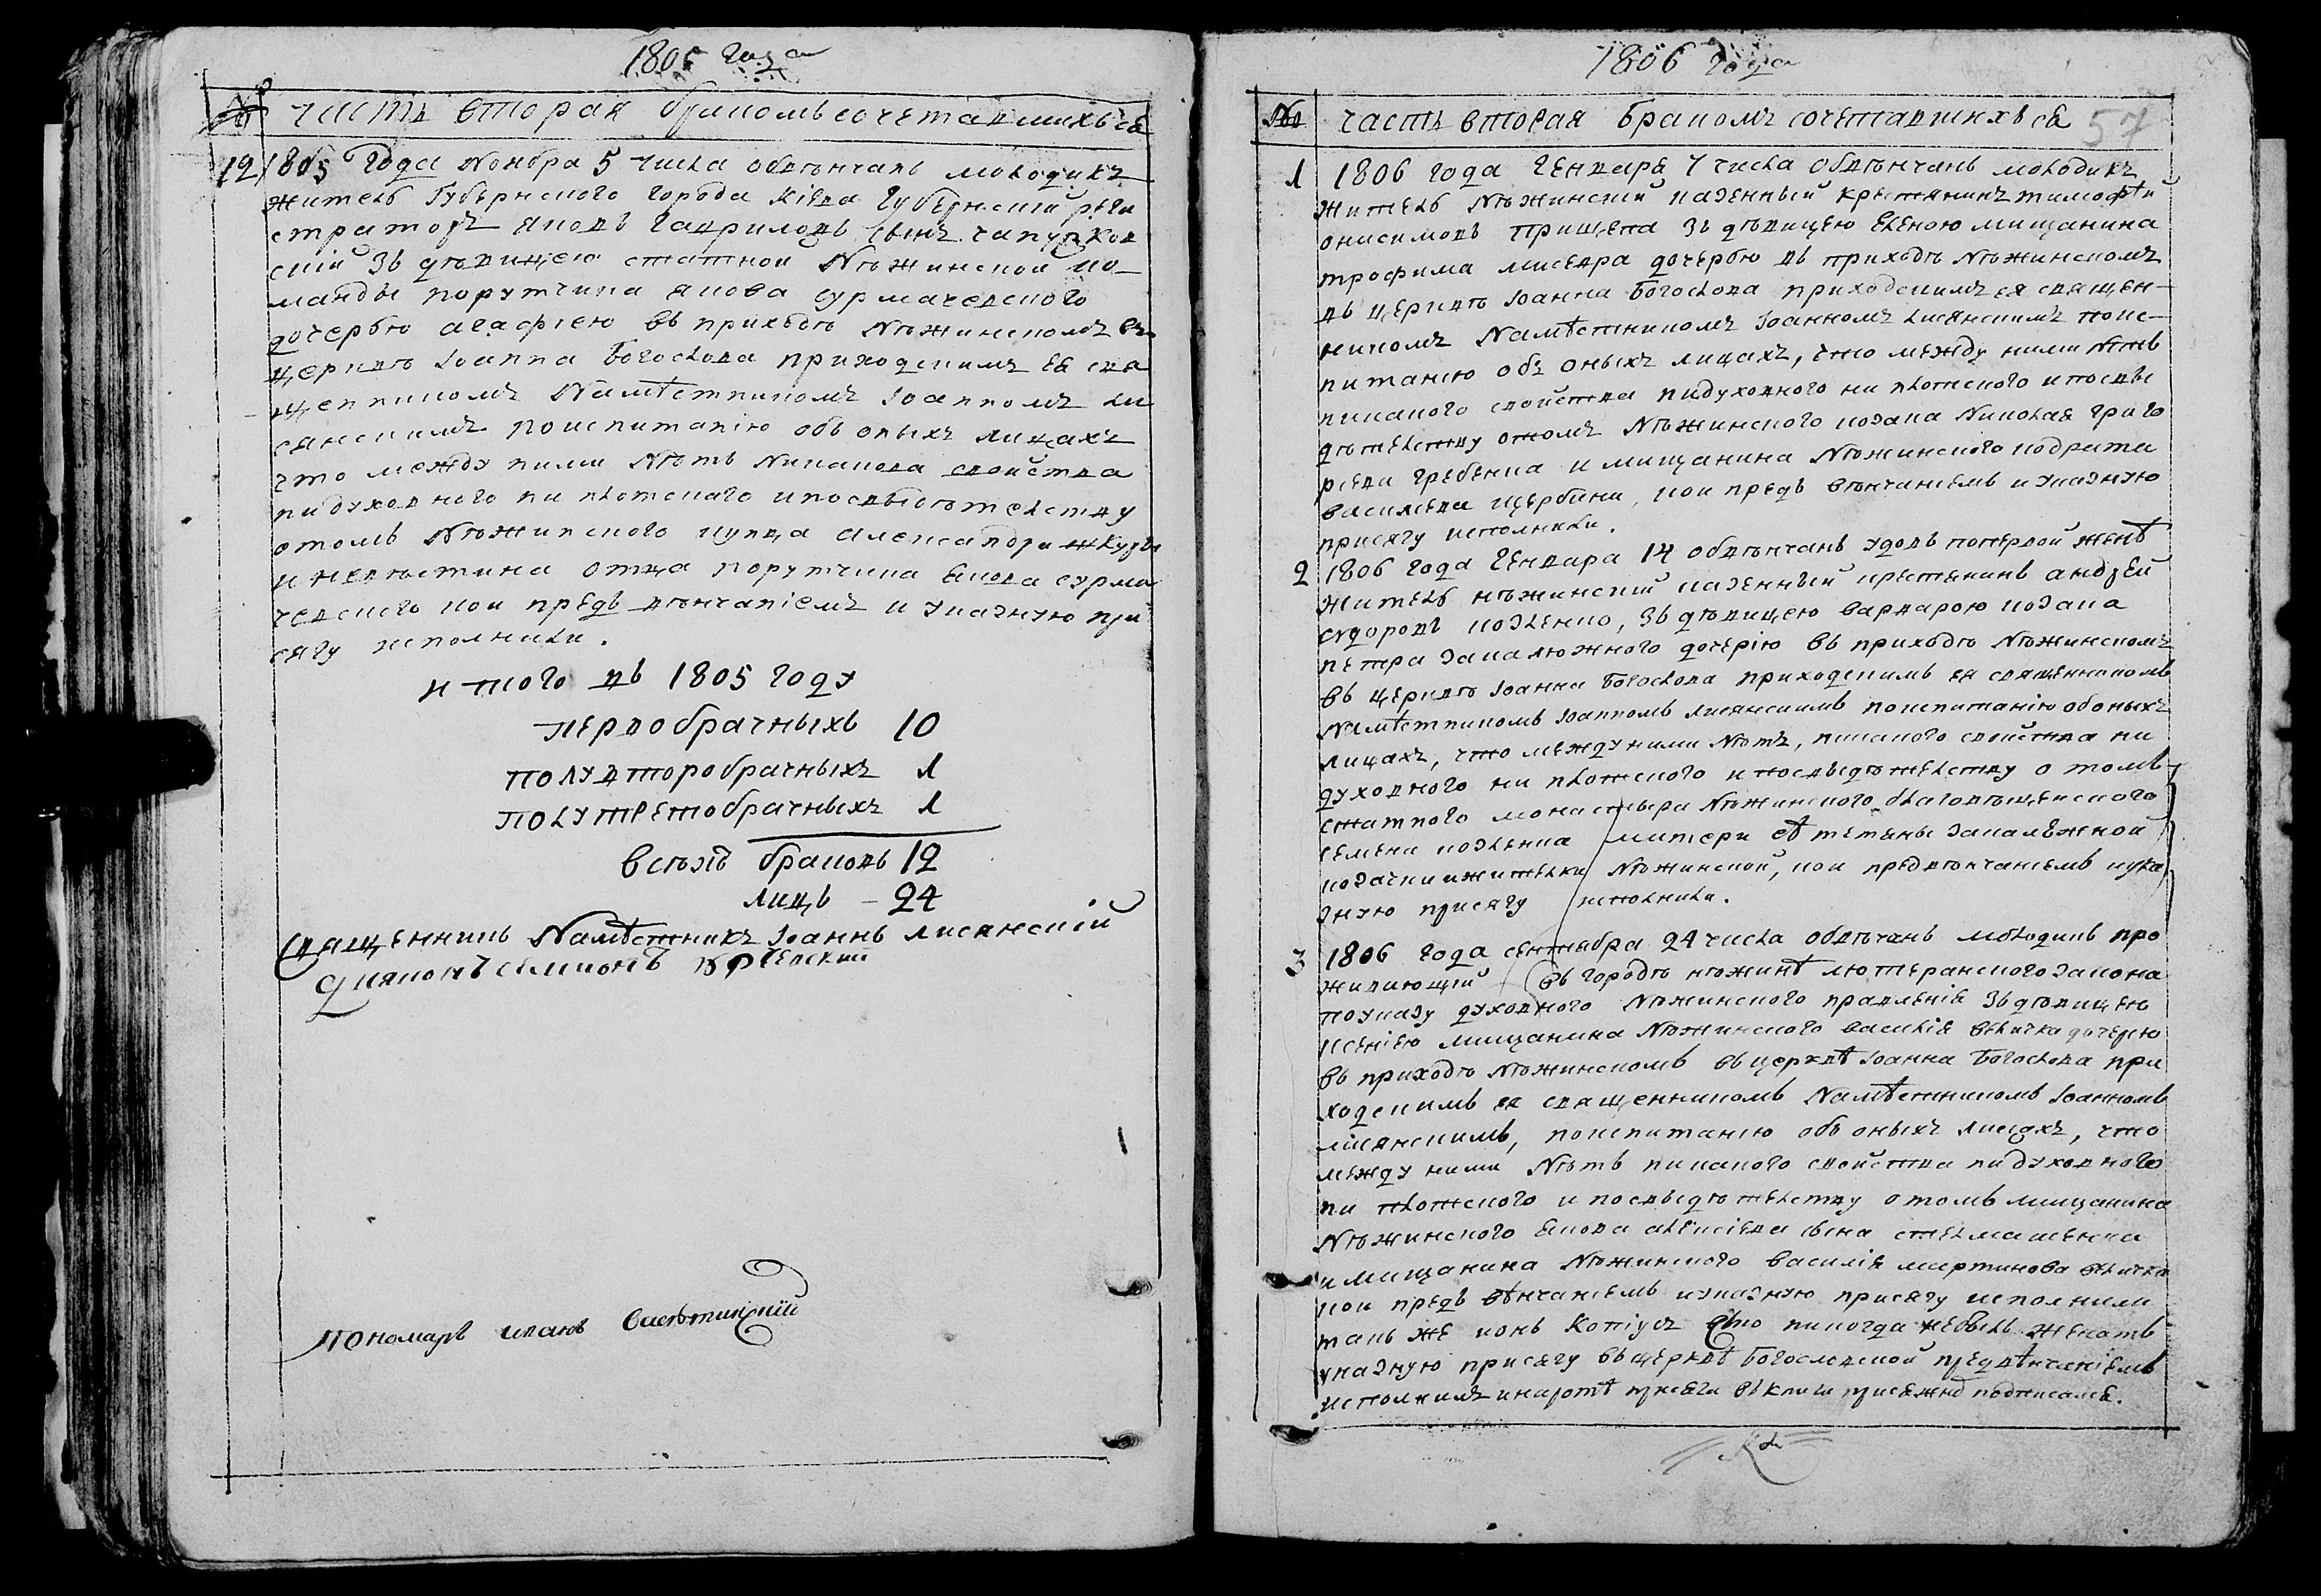 1805 года
№ часть вторая бракомъ сочетавшихъся
12 1805 года Ноября 5 числа обвѣнчанъ молодикъ
житель Губернского города Кіева Губернскій реги
страторъ Яковъ Гавриловъ сынъ
скій зъ дѣвицею статной Нѣжинской ко-
манды порутчика Якова Сурмачевского
дочерью Агафіею въ приходѣ Нѣжинскомъ въ
церквѣ Іоанна Богослова приходскимъ ея свя
щенникомъ Намѣстникомъ Іоанномъ Ли
сянскимъ поиспитанію объ оныхъ лицахъ
что между ними Нѣтъ Никакова свойства
ни духовного ни плотскаго и посвыдѣтелству
отомъ Нѣжинского купца Александра
и невѣстина отца порутчика Якова Сурма
чевского кои предъ вѣнчаніемъ и указную при
сягу исполнили.
итого въ 1805 году
первобрачныхъ 10
полувторобрачныхъ 1
полутретобрачныхъ 1
всѣхъ браковъ 12
лицъ – 24
Священникъ Намѣстникъ Іоаннъ Лисянскій
Дияконъ Семионъ
Пономарь Иванъ
1806 года
57
№ часть вторая бракомъ сочетавшихъ ся
1 1806 года Генваря 7 числа обвѣнчанъ молодикъ
житель Нѣжинскій казенный крестянинъ Тимофѣй
Онисимовъ Прищепа зъ дѣвицею Еленою мищанина
Трофима Лисевра дочерью въ приходѣ Нѣжинскомъ
въ церквѣ Іоанна Богослова приходскимъ ея священ-
никомъ Намѣстникомъ Іоанномъ Лисянскимъ поис-
питанію объ оныхъ лицахъ, что между ними Нѣтъ
никакого свойства нидуховного ни плотского и посвы
дѣтелству отомъ Нѣжинского козака Николая Григо
риева Гребенка и мищанина Нѣжинского кодрата
Василева Щербини, кои предъ вѣнчаніемъ и указную
присягу исполнили.
2 1806 года Генвара 14 обвѣнчанъ удовъ попервой женѣ
житель нѣжинскій казенный крестянинъ Андрей
Сидоровъ Козленко, зъ дѣвицею Варварою козака
Петра Закалюжного дочерію въ приходѣ Нѣжинскомъ
въ церквѣ Іоанна Богослова приходскимъ ея священникомъ
Намѣстникомъ Іоанномъ Лисянскимъ поиспитанію обоныхъ
лицахъ, что между ними Нѣтъ, никакого свойства ни
духовного ни плотского и посвыдѣтелству о томъ
статного монастыра Нѣжинского Благовѣщенского
Семена Козленка матери еѣ Тетяны Закалежной
козачки и жителки Нѣжинской, кои предвѣнчаніемъ иука
зную присягу исполнили.
3 1806 года сентября 24 числа обвѣчанъ молодикъ про
живающій въ городѣ нѣжинѣ лютеранского закона
поуказу духовного Нѣжинского правленія зъ дѣвицею
Ксеніею мищанина Нѣжинского Василія Величка дочерю
въ приходѣ Нѣжинскомъ въ церквѣ Іоанна Богослова при
ходскимъ ея священникомъ Намѣстникомъ Іоанномъ
Лисянскимъ, поиспитанію объ оныхъ лицахъ, что
между ними Нѣтъ никакого свойства нидуховного
ни плотского и посвыдѣтелству отомъ мищанина
Нѣжинского Якова Алексіева сына Стелмашенка
и мищанина Нѣжинского Василія Мартинова Величка
кои предъ вѣнчаніемъ и указную присягу исполнили
такъ же конъ Копіусъ что никогда небылъ женатъ
указную присягу въ церквѣ Богословской предвѣнчаніемъ
исполнилъ инаротѣ присяги въ книги присяжно подписался.